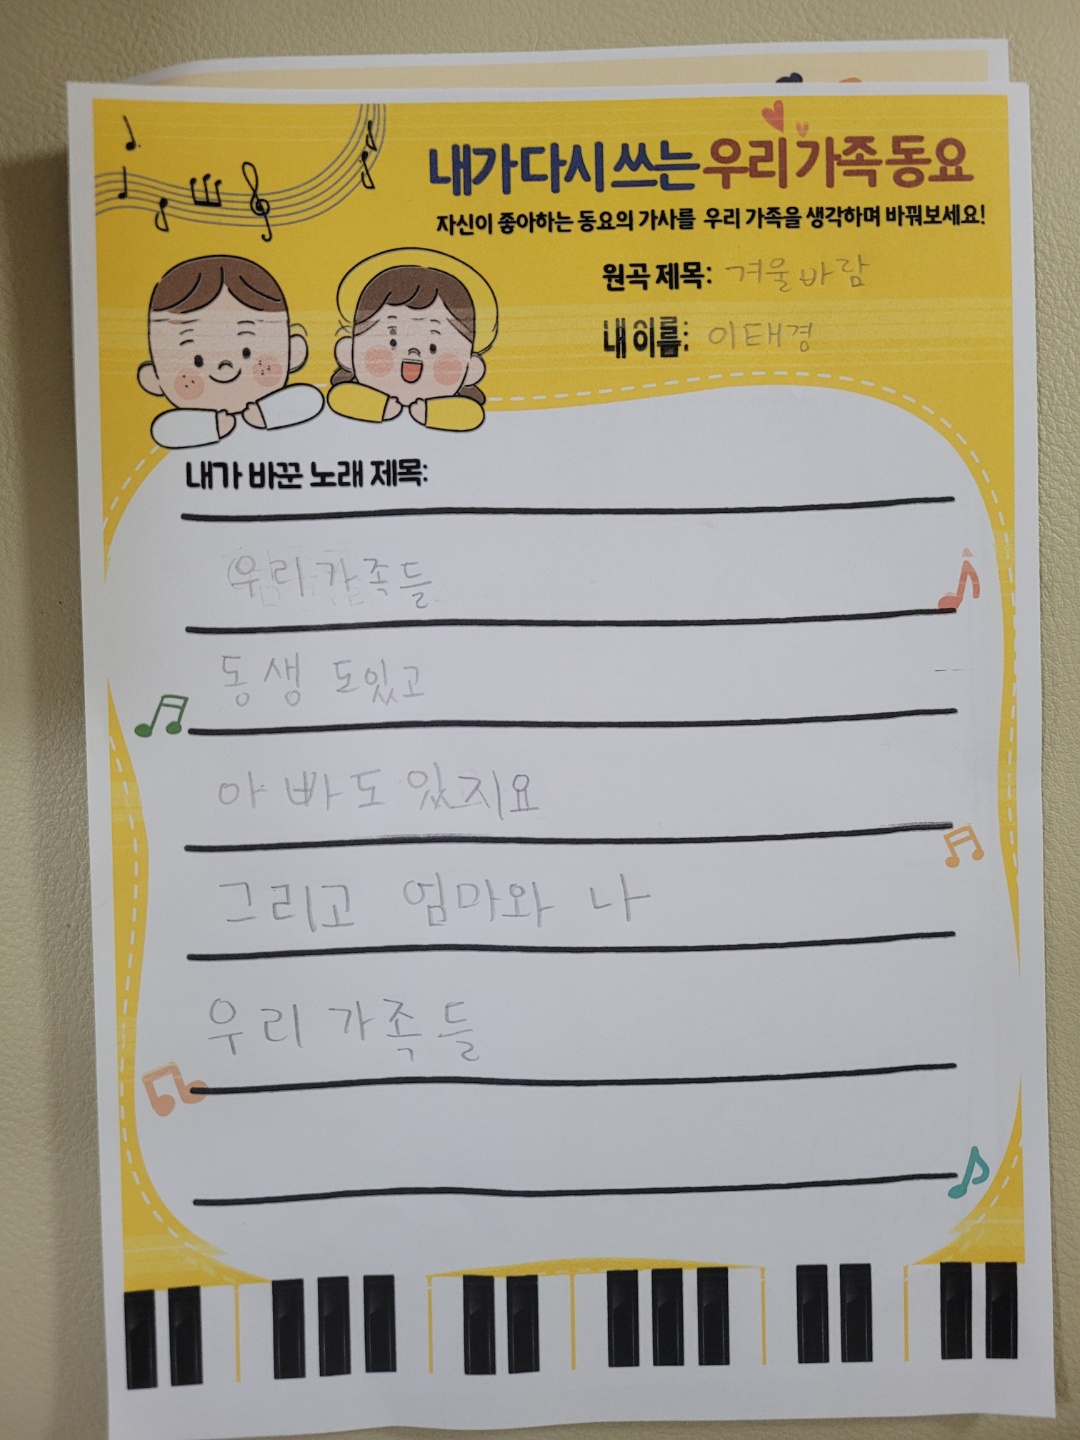 내가 다시 쓰는 우리 가족 동요
자신이 좋아하는 동요의 가사를 우리 가족을 생각하며 바꿔보세요!
원곡 제목: 겨울바람
내 이름: 이태경
내가 바꾼 노래 제목:
우리 가족들
동생 도있고
아빠도 있지요
그리고 엄마와 나
우리 가족들